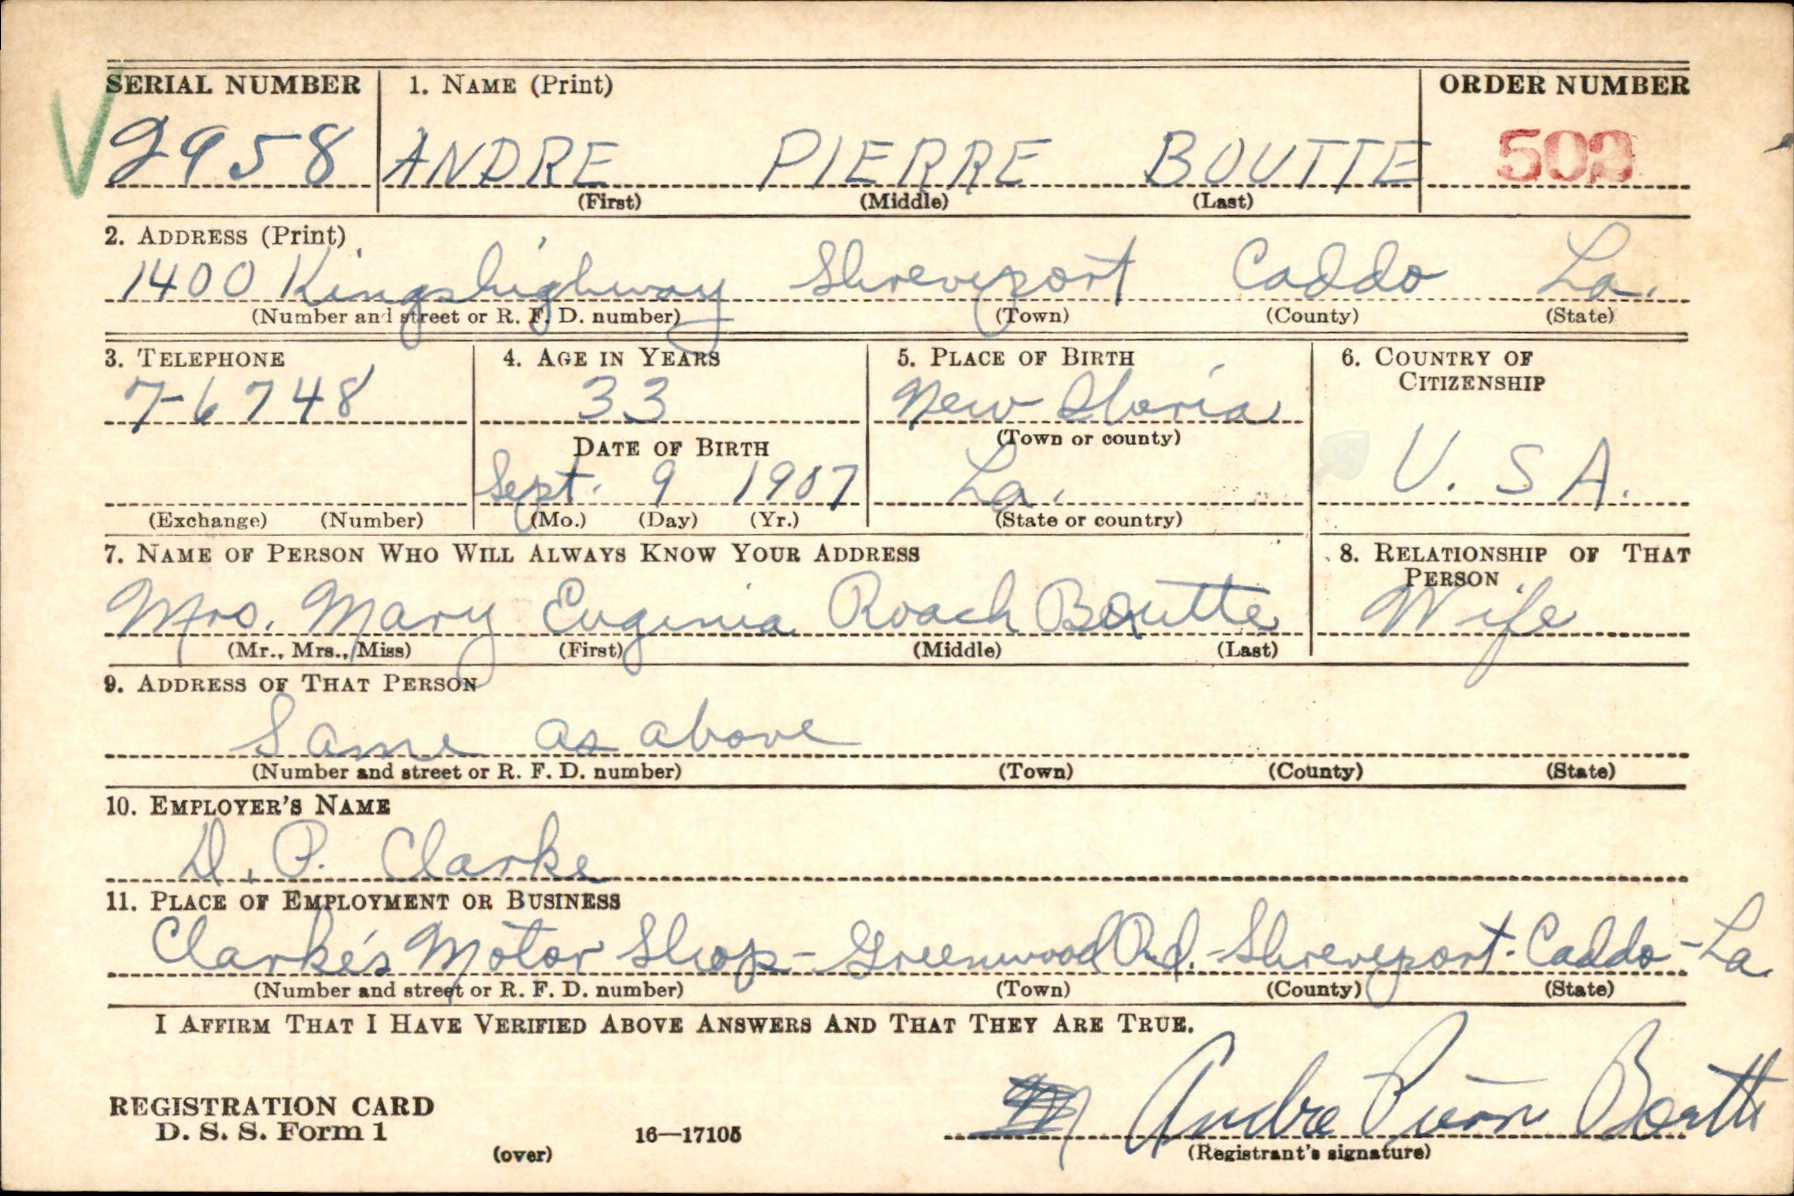 SERIAL NUMBER 1. NAME (Print) ORDER NUMBER
2958 ANDRE PIERRE BOUTTE
(First) (Middle) (Last)
2. ADDRESS (Print)
1400 Kingshighway Shreveport Caddo La.
(Number and street or R. F. D. number) (Town) (County) (State)
3. TELEPHONE 4. AGE IN YEARS 5. PLACE OF BIRTH 6. COUNTRY OF
CITIZENSHIP
7-6748 33 New Iberia
DATE OF BIRTH (Town or county)
Sept. 9 1907 La. U. S A.
(Exchange) (Number) (Mo.) (Day) (Yr.) (State or country)
7. NAME OF PERSON WHO WILL ALWAYS KNOW YOUR ADDRESS 8. RELATIONSHIP OF THAT
PERSON
Mrs. Mary Euginia Roach Boutte Wife
(Mr., Mrs., Miss) (First) (Middle) (Last)
9. ADDRESS OF THAT PERSON
Same as above
(Number and street or R. F. D. number) (Town) (County) (State)
10. EMPLOYER'S NAME
D. P. Clarke
11. PLACE OF EMPLOYMENT OR BUSINESS
Clarke's Motor Shop - Greenwood Rd. - Shreveport - Caddo - La.
(Number and street or R. F. D. number) (Town) (County) (State)
I AFFIRM THAT I HAVE VERIFIED ABOVE ANSWERS AND THAT THEY ARE TRUE.
REGISTRATION CARD
D. S. S. Form 1 16—17105 Andre Pierre Boutte
(over) (Registrant's signature)